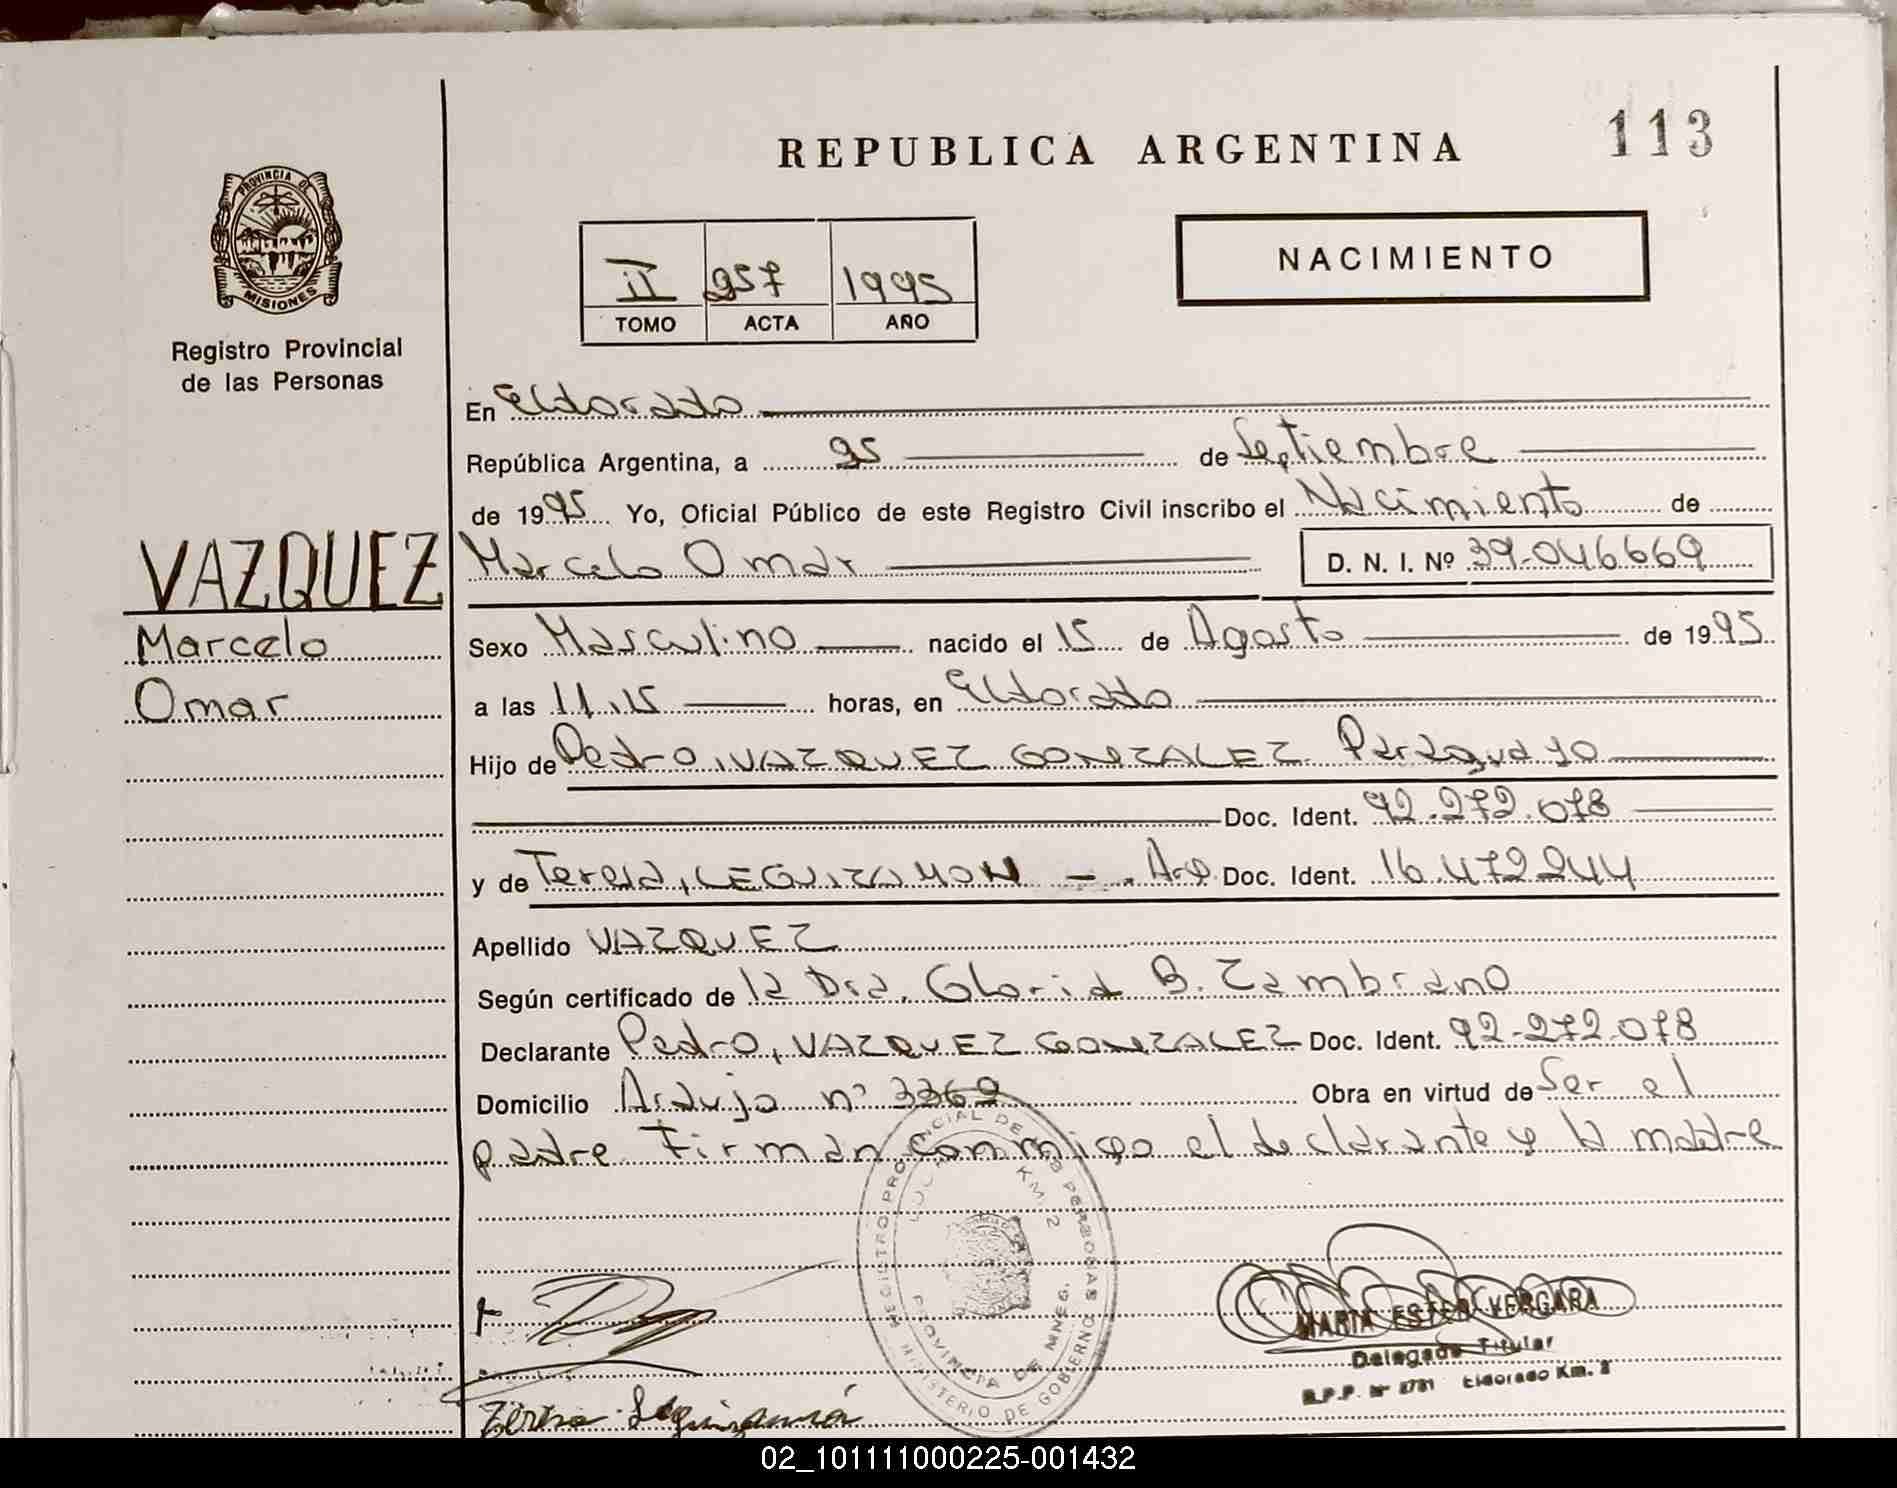 113
REPUBLICA ARGENTINA
PROVINCIA DE
MISIONES
Registro Provincial
de las Personas
NACIMIENTO
II 257 1995
TOMO ACTA AÑO
En Eldorado
República Argentina, a 25 de Septiembre
de 1995 Yo, Oficial Público de este Registro Civil inscribo el Nacimiento de
VAZQUEZ
Marcelo
Omar
Marcelo Omar D. N. I. Nº 39.046669
Sexo Masculino nacido el 15 de Agosto de 1995
a las 11,15 horas, en Eldorado
Hijo de Pedro, VAZQUEZ GONZALEZ. Paraguayo
Doc. Ident. 92.272.078
y de Teresa, LEGUIZAMON - . Arg. Doc. Ident. 16.472244
Apellido VAZQUEZ
Según certificado de la Dra. Gloria B. Zambrano
Declarante Pedro, VAZQUEZ GONZALEZ Doc. Ident. 92-272.078
Domicilio Araujo nº 3369 Obra en virtud de Ser el
padre Firman conmigo el declarante y la madre
REGISTRO PROVINCIAL DE LAS PERSONAS
KM. 2
PROVINCIA DE MNES.
MINISTERIO DE GOBIERNO
MARTA ESTER VERGARA
Delegado Titular
Eldorado Km. 2
Teresa Leguizamón
02_101111000225-001432